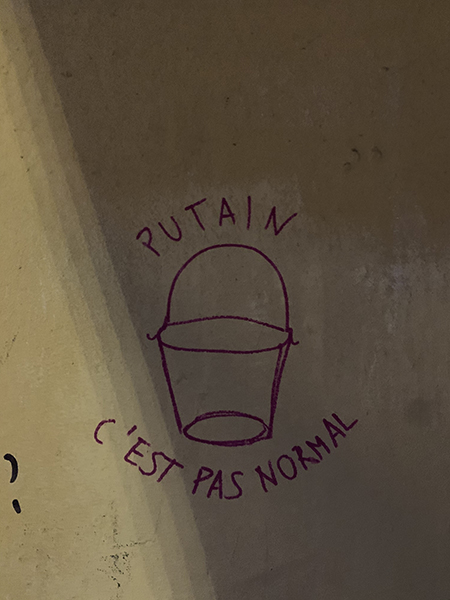 PUTAIN
C'EST PAS NORMAL